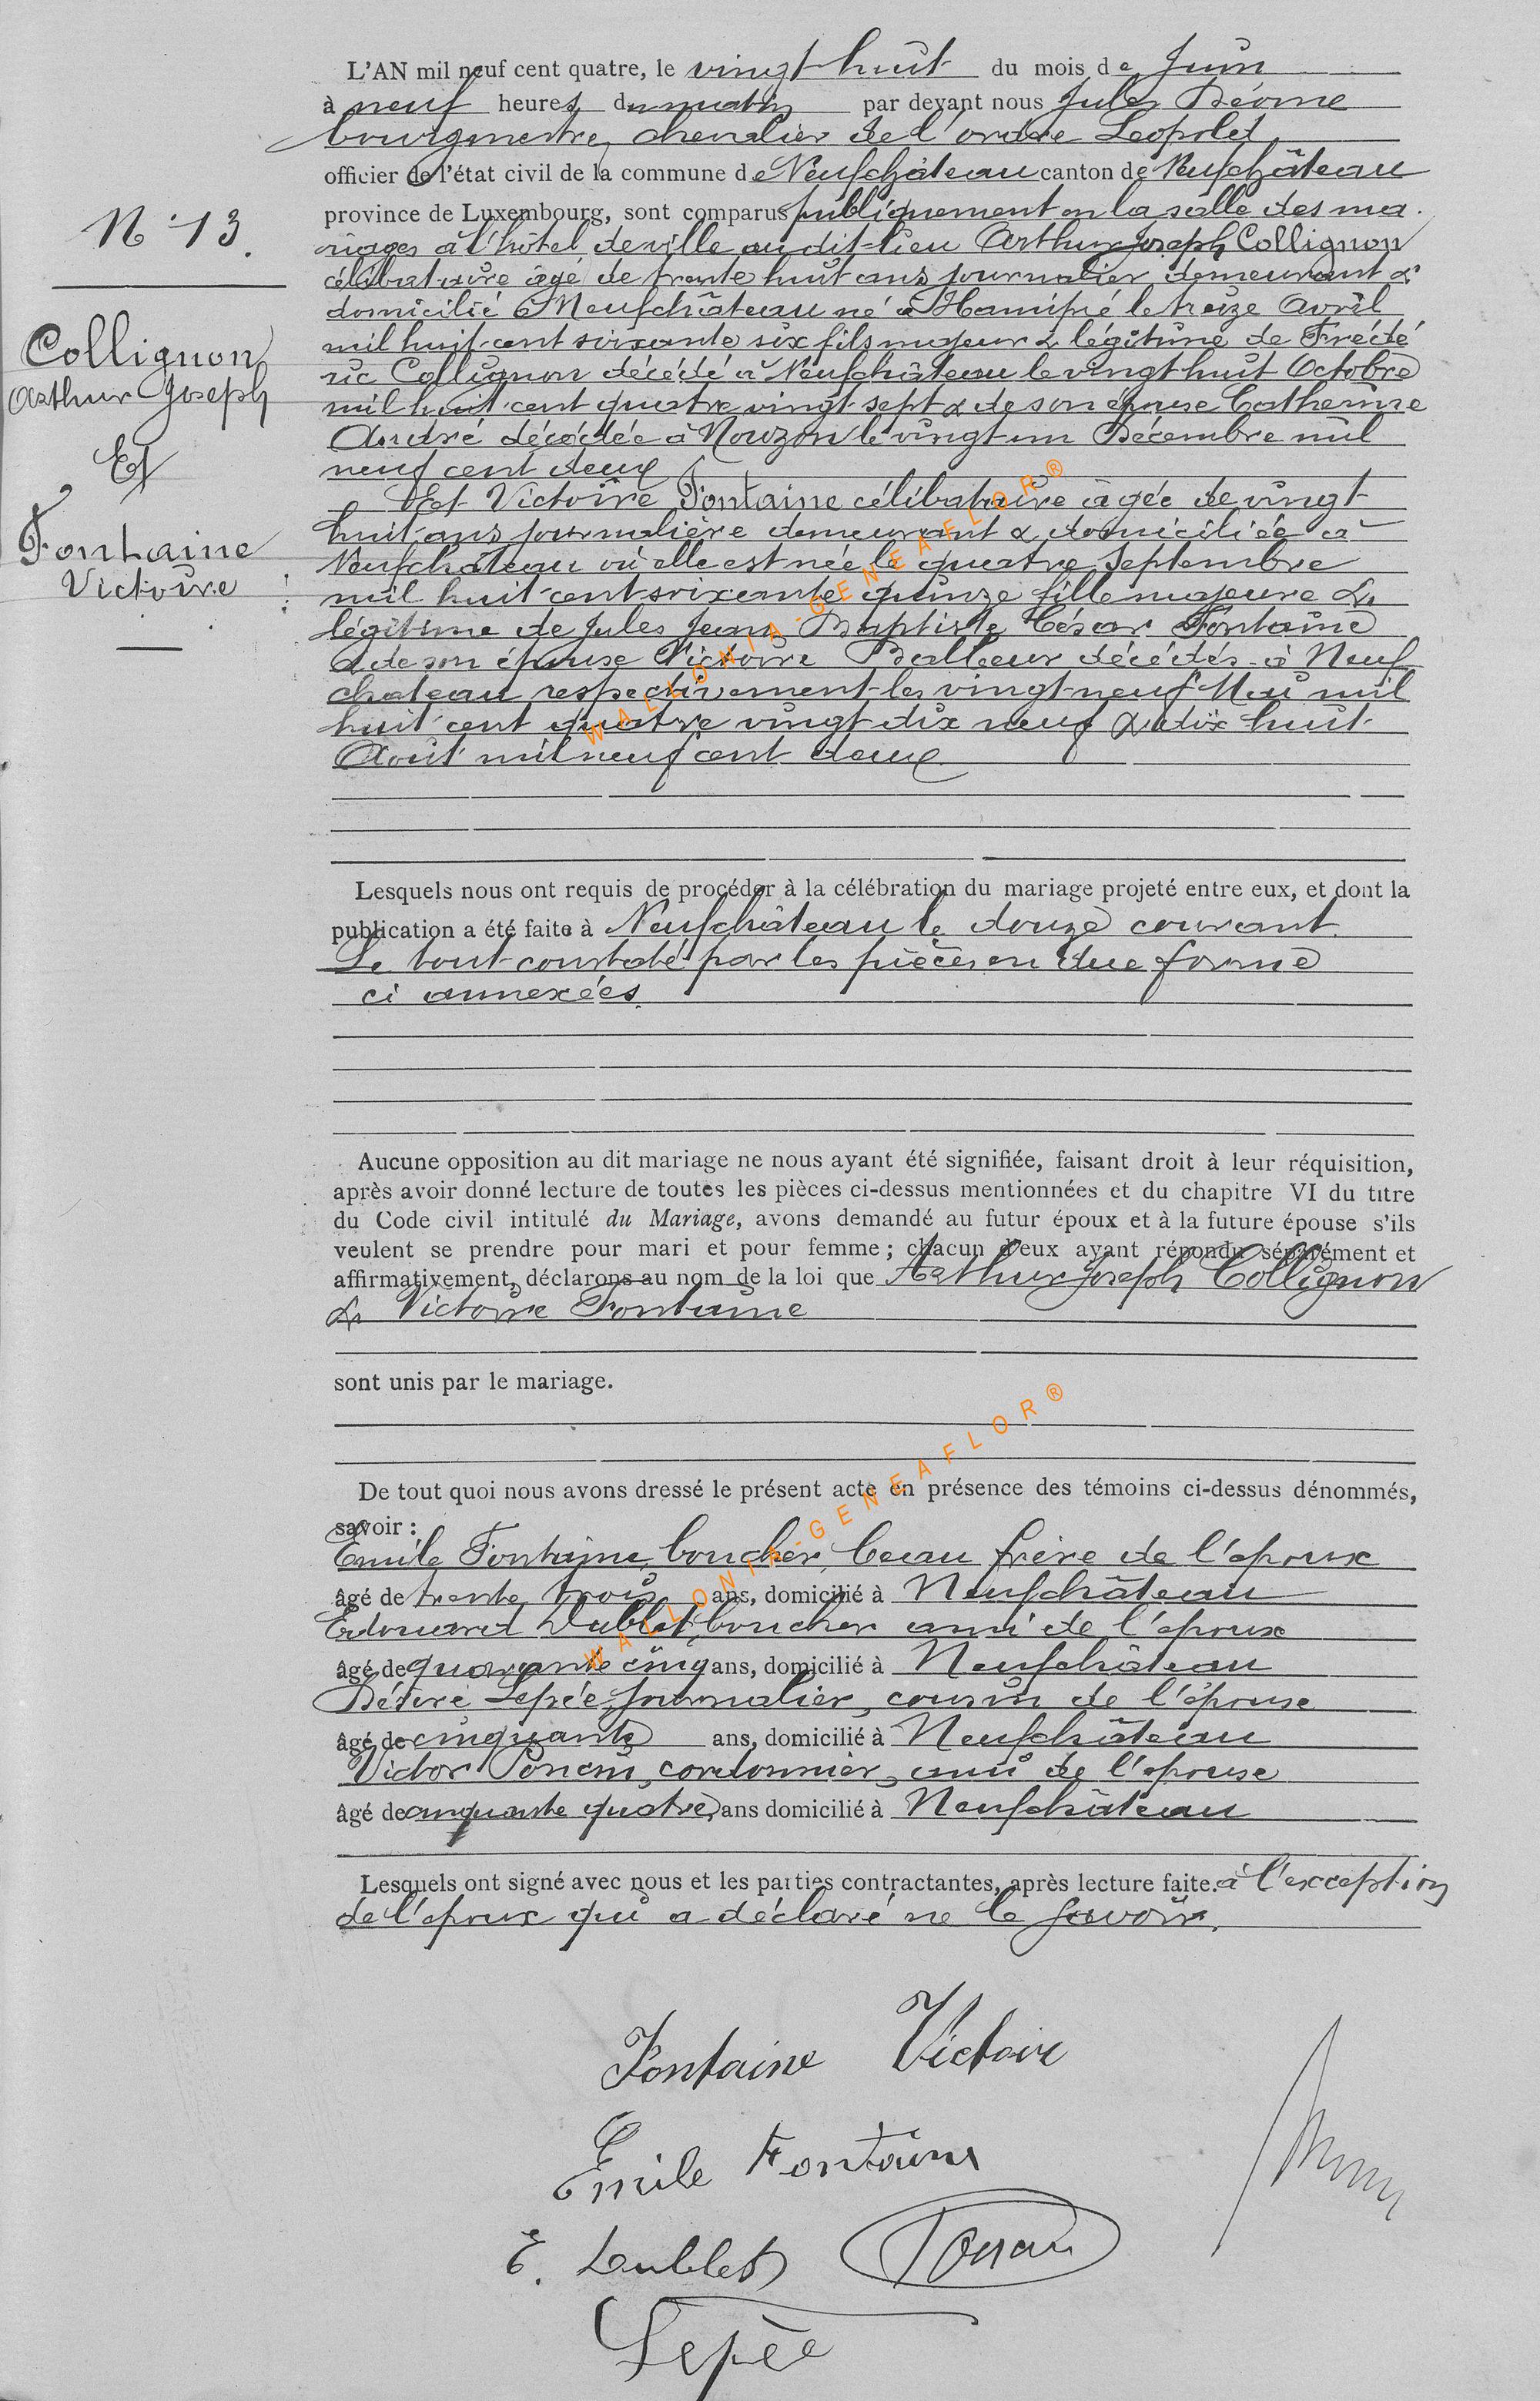 L'AN mil neuf cent quatre, le vingt huit du mois de Juin
à neuf heures du matin par devant nous Jules Déome
bourgmestre, chevalier de l'ordre Leopold,
officier de l'état civil de la commune de Neufchâteau canton de Neufchâteau
province de Luxembourg, sont comparus publiquement en la salle des ma
riages à l'hôtel de ville audit-lieu Arthur Joseph Collignon
célibataire âgé de trente huit ans journalier demeurant &
domicilié à Neufchâteau né à Hamipré le treize Avril
mil huit cent soixante six fils majeur & légitime de Frédé
ric Collignon décédé à Neufchâteau le vingt huit Octobre
mil huit cent quatre vingt sept & de son épouse Catherine
André décédée à Nouzon le vingt un Décembre mil
neuf cent deux
Et Victoire Fontaine célibataire âgée de vingt
huit ans journalière demeurant & domiciliée à
Neufchâteau où elle est née le quatre Septembre
mil huit cent soixante quinze fille majeure &
légitime de Jules Jean Baptiste César Fontaine
& de son épouse Victoire Balleur décédés à Neuf
chateau respectivement les vingt neuf Mai mil
huit cent quatre vingt dix neuf & dix huit
Août mil neuf cent deux
N° 13.
Collignon
Arthur Joseph
Et
Fontaine
Victoire
Lesquels nous ont requis de procéder à la célébration du mariage projeté entre eux, et dont la
publication a été faite à Neufchâteau le douze courant.
Le tout constaté par les pièces en due forme
ci annexées.
Aucune opposition au dit mariage ne nous ayant été signifiée, faisant droit à leur réquisition,
après avoir donné lecture de toutes les pièces ci-dessus mentionnées et du chapitre VI du titre
du Code civil intitulé du Mariage, avons demandé au futur époux et à la future épouse s'ils
veulent se prendre pour mari et pour femme ; chacun d'eux ayant répondu séparément et
affirmativement, déclarons au nom de la loi que Arthur Joseph Collignon
& Victoire Fontaine
sont unis par le mariage.
De tout quoi nous avons dressé le présent acte en présence des témoins ci-dessus dénommés,
savoir :
Emile Fontaine, boucher, beau frère de l'époux
âgé de trente trois ans, domicilié à Neufchâteau
Edouard Dublet, boucher ami de l'époux
âgé de quarante cinq ans, domicilié à Neufchâteau
Désiré Lepée, journalier, cousin de l'épouse
âgé de cinquante ans, domicilié à Neufchâteau
Victor Poncin, cordonnier, ami de l'épouse
âgé de cinquante quatre ans domicilié à Neufchâteau
Lesquels ont signé avec nous et les parties contractantes, après lecture faite. à l'exception
de l'époux qui a déclaré ne le savoir.
Fontaine Victoire
Emile Fontaine
E. Dublet Poncin
Lepée
WALLONIA-GENEAFLOR®
WALLONIA-GENEAFLOR®